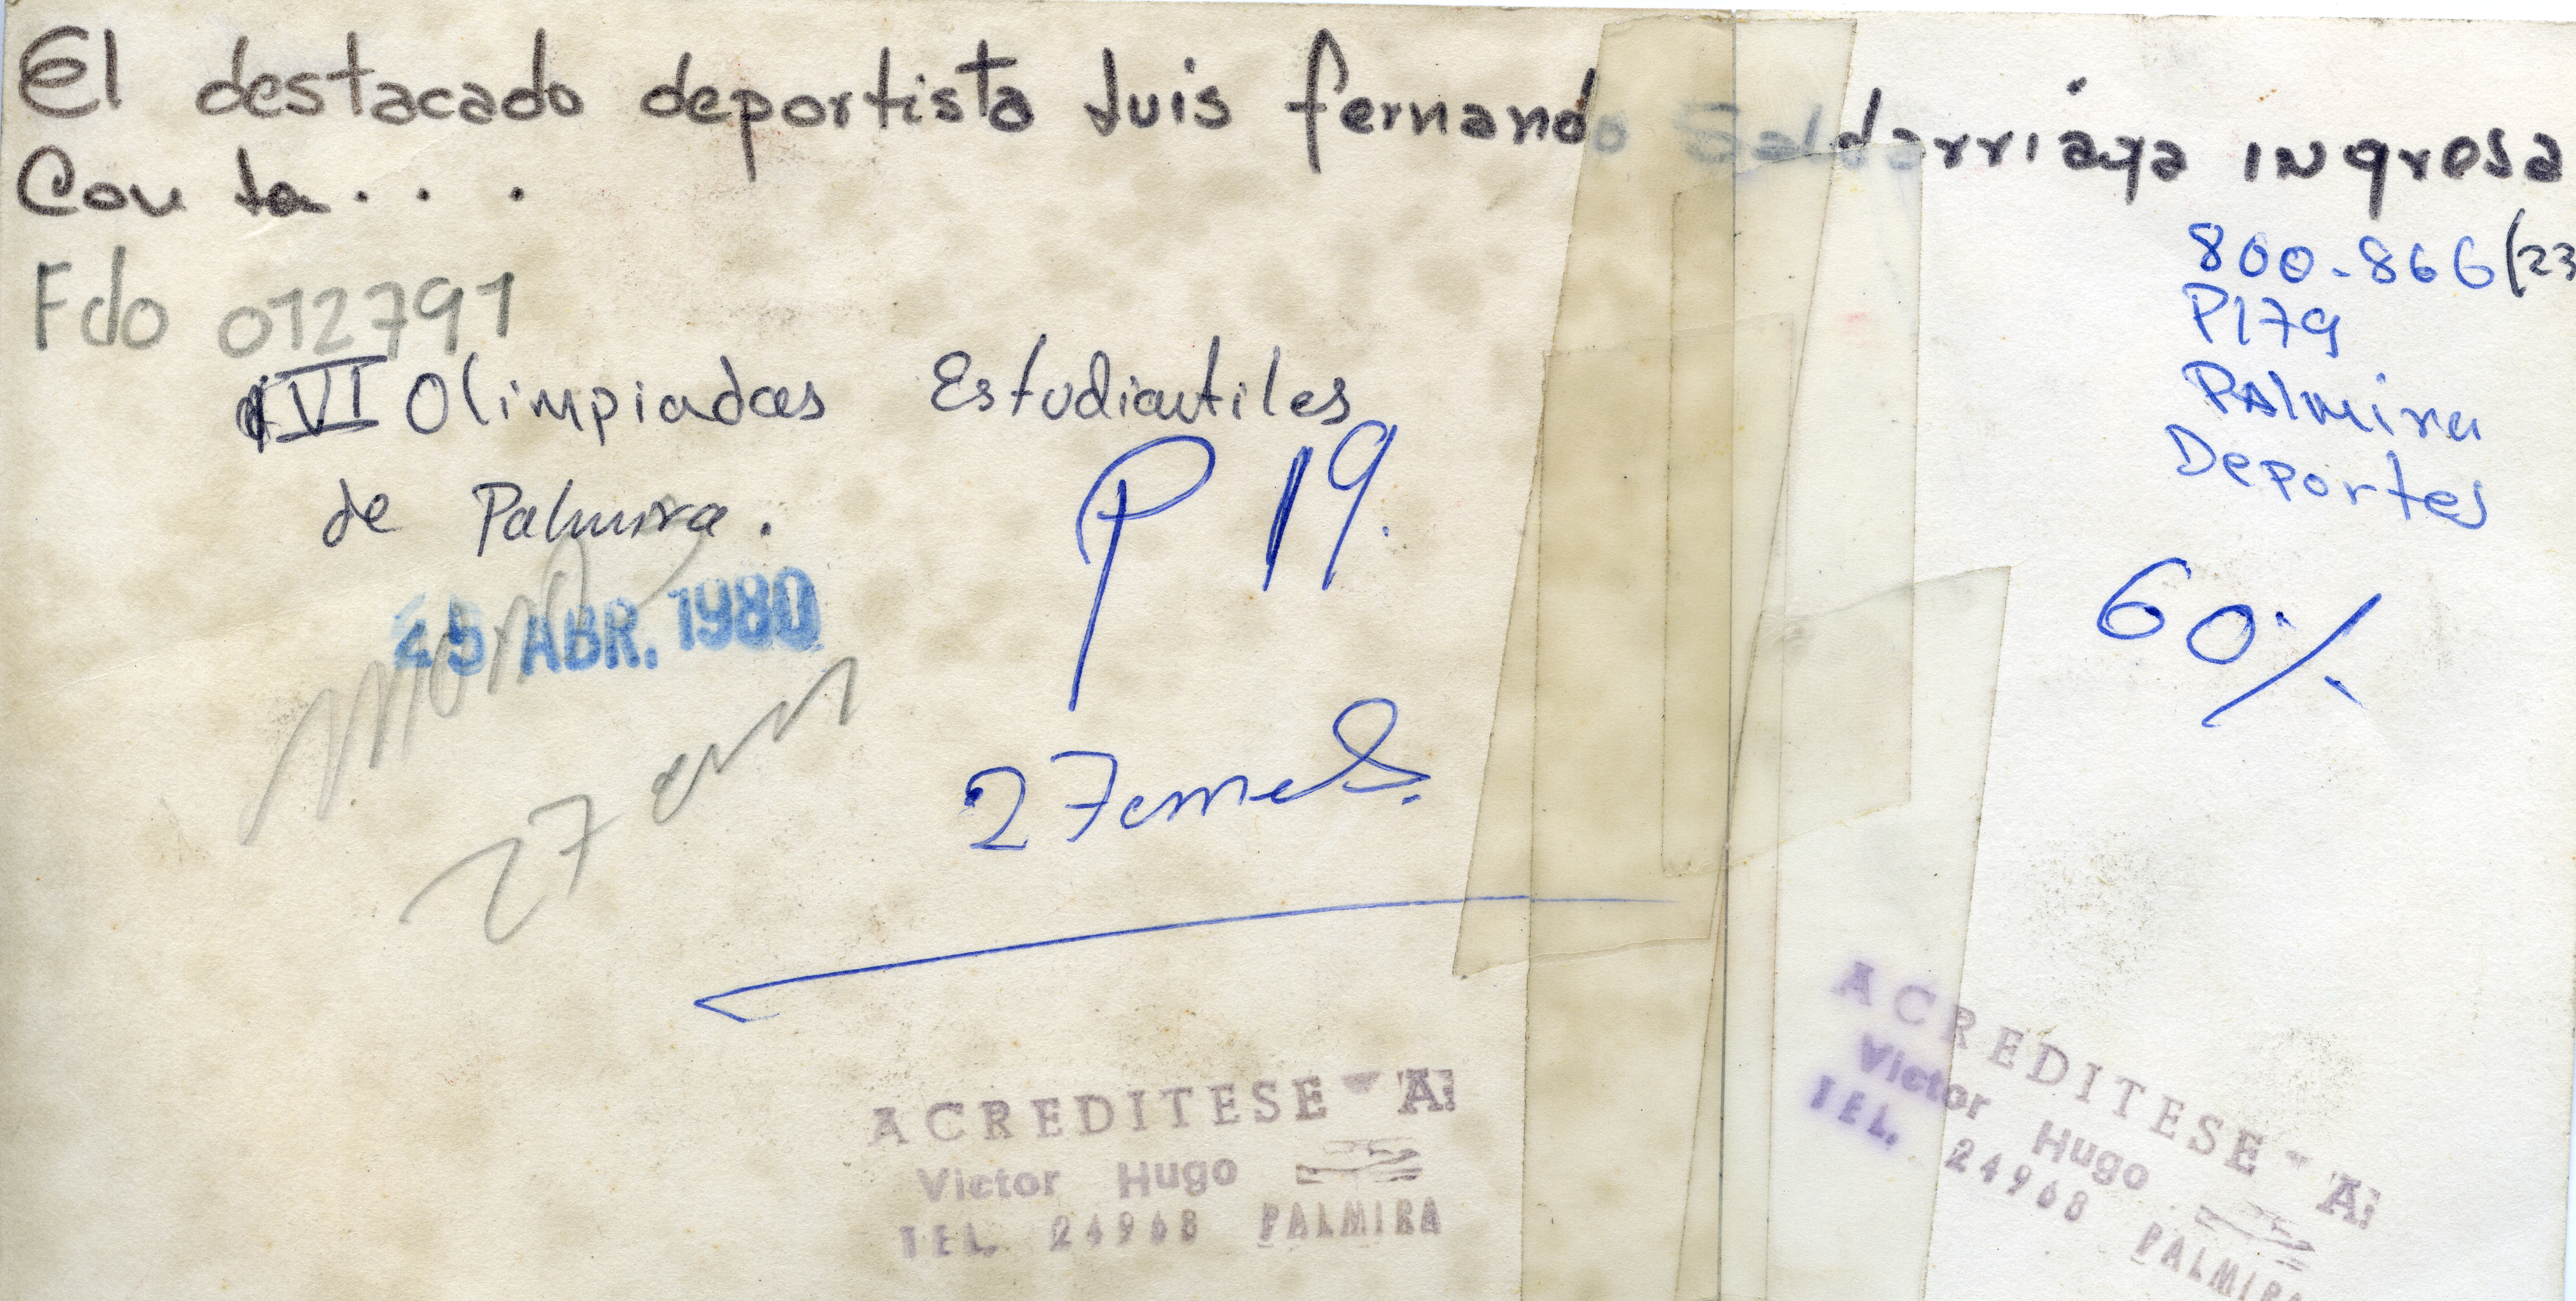 El destacado deportista Luis fernando Saldarriaga ingresa
Con la . . .
Fdo 012791
VI Olimpiadas Estudiantiles
de Palmira.
25 ABR. 1980
27 em
P 19.
27 eme
800-866 (23
P179
Palmira
Deportes
60%
ACREDITESE "A:
Victor Hugo
TEL. 24968 PALMIRA
ACREDITESE "A:
Victor Hugo
TEL. 24968 PALMIRA